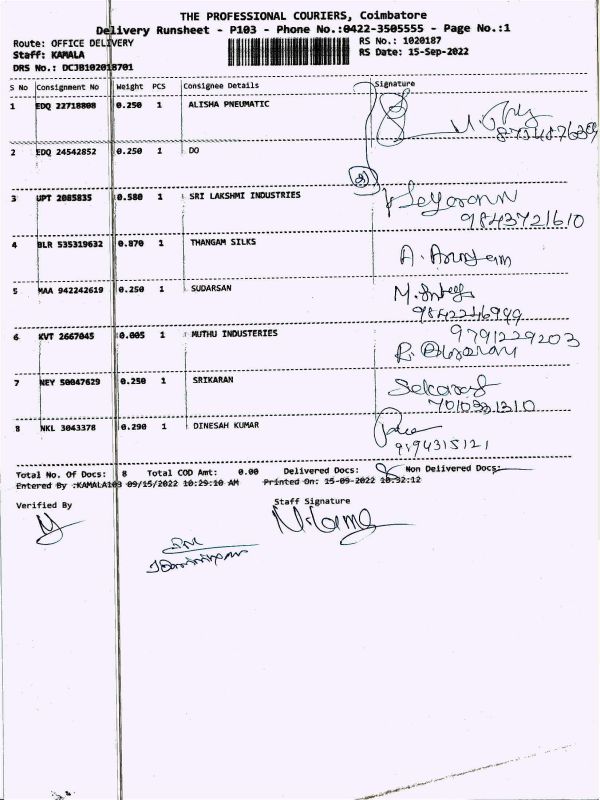 THE PROFESSIONAL COURIERS, Coimbatore
Delivery Runsheet - P103 - Phone No.:0422-3505555 - Page No.:1
Route: OFFICE DELIVERY
RS No.: 1020187
Staff: KAMALA
RS Date: 15-Sep-2022
DRS No.: DCJB102018701
S No Consignment No Weight PCS Consignee Details Signature
1 EDQ 22718808 0.250 1 ALISHA PNEUMATIC
2 EDQ 24542852 0.250 1 DO
3 UPT 2085835 0.580 1 SRI LAKSHMI INDUSTRIES
9843721610
4 BLR 535319632 0.870 1 THANGAM SILKS
5 MAA 942242619 0.250 1 SUDARSAN
9842246949
6 KVT 2667045 0.005 1 MUTHU INDUSTERIES
9791229203
7 NEY 50047629 0.250 1 SRIKARAN
8 NKL 3043378 0.290 1 DINESAH KUMAR
Total No. Of Docs: 8 Total COD Amt: 0.00 Delivered Docs: 8 Non Delivered Docs:
Entered By :KAMALA103 09/15/2022 10:29:10 AM Printed On: 15-09-2022 10:32:12
Verified By Staff Signature